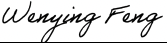 Wenying Feng